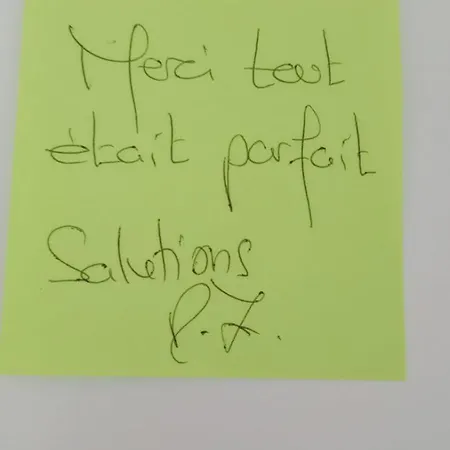 Merci tout
était parfait
Salutions
P.Z.